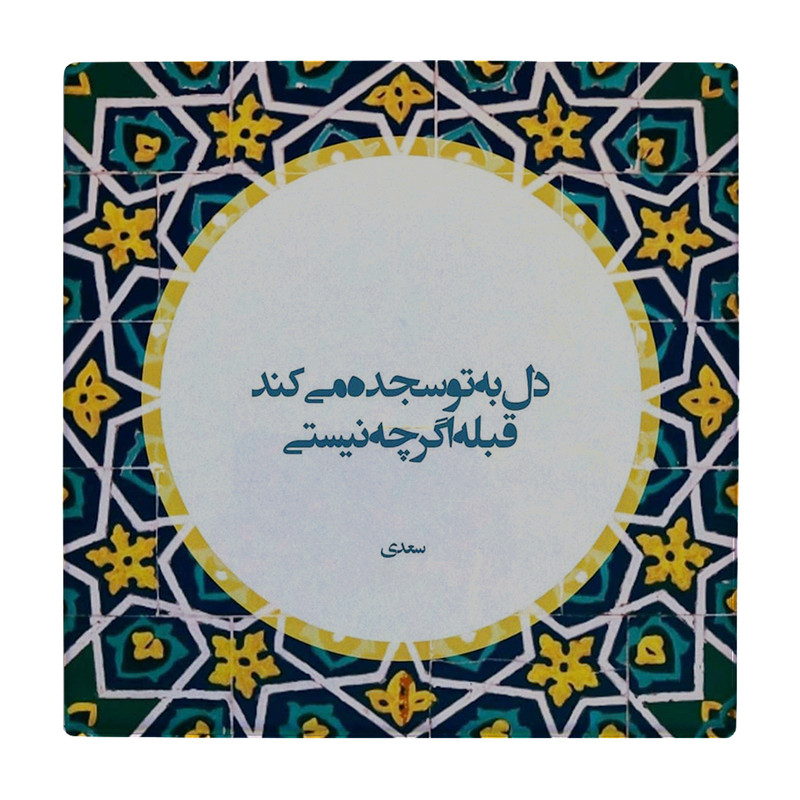 دل به تو سجده می کند
قبله اگر چه نیستی
سعدی